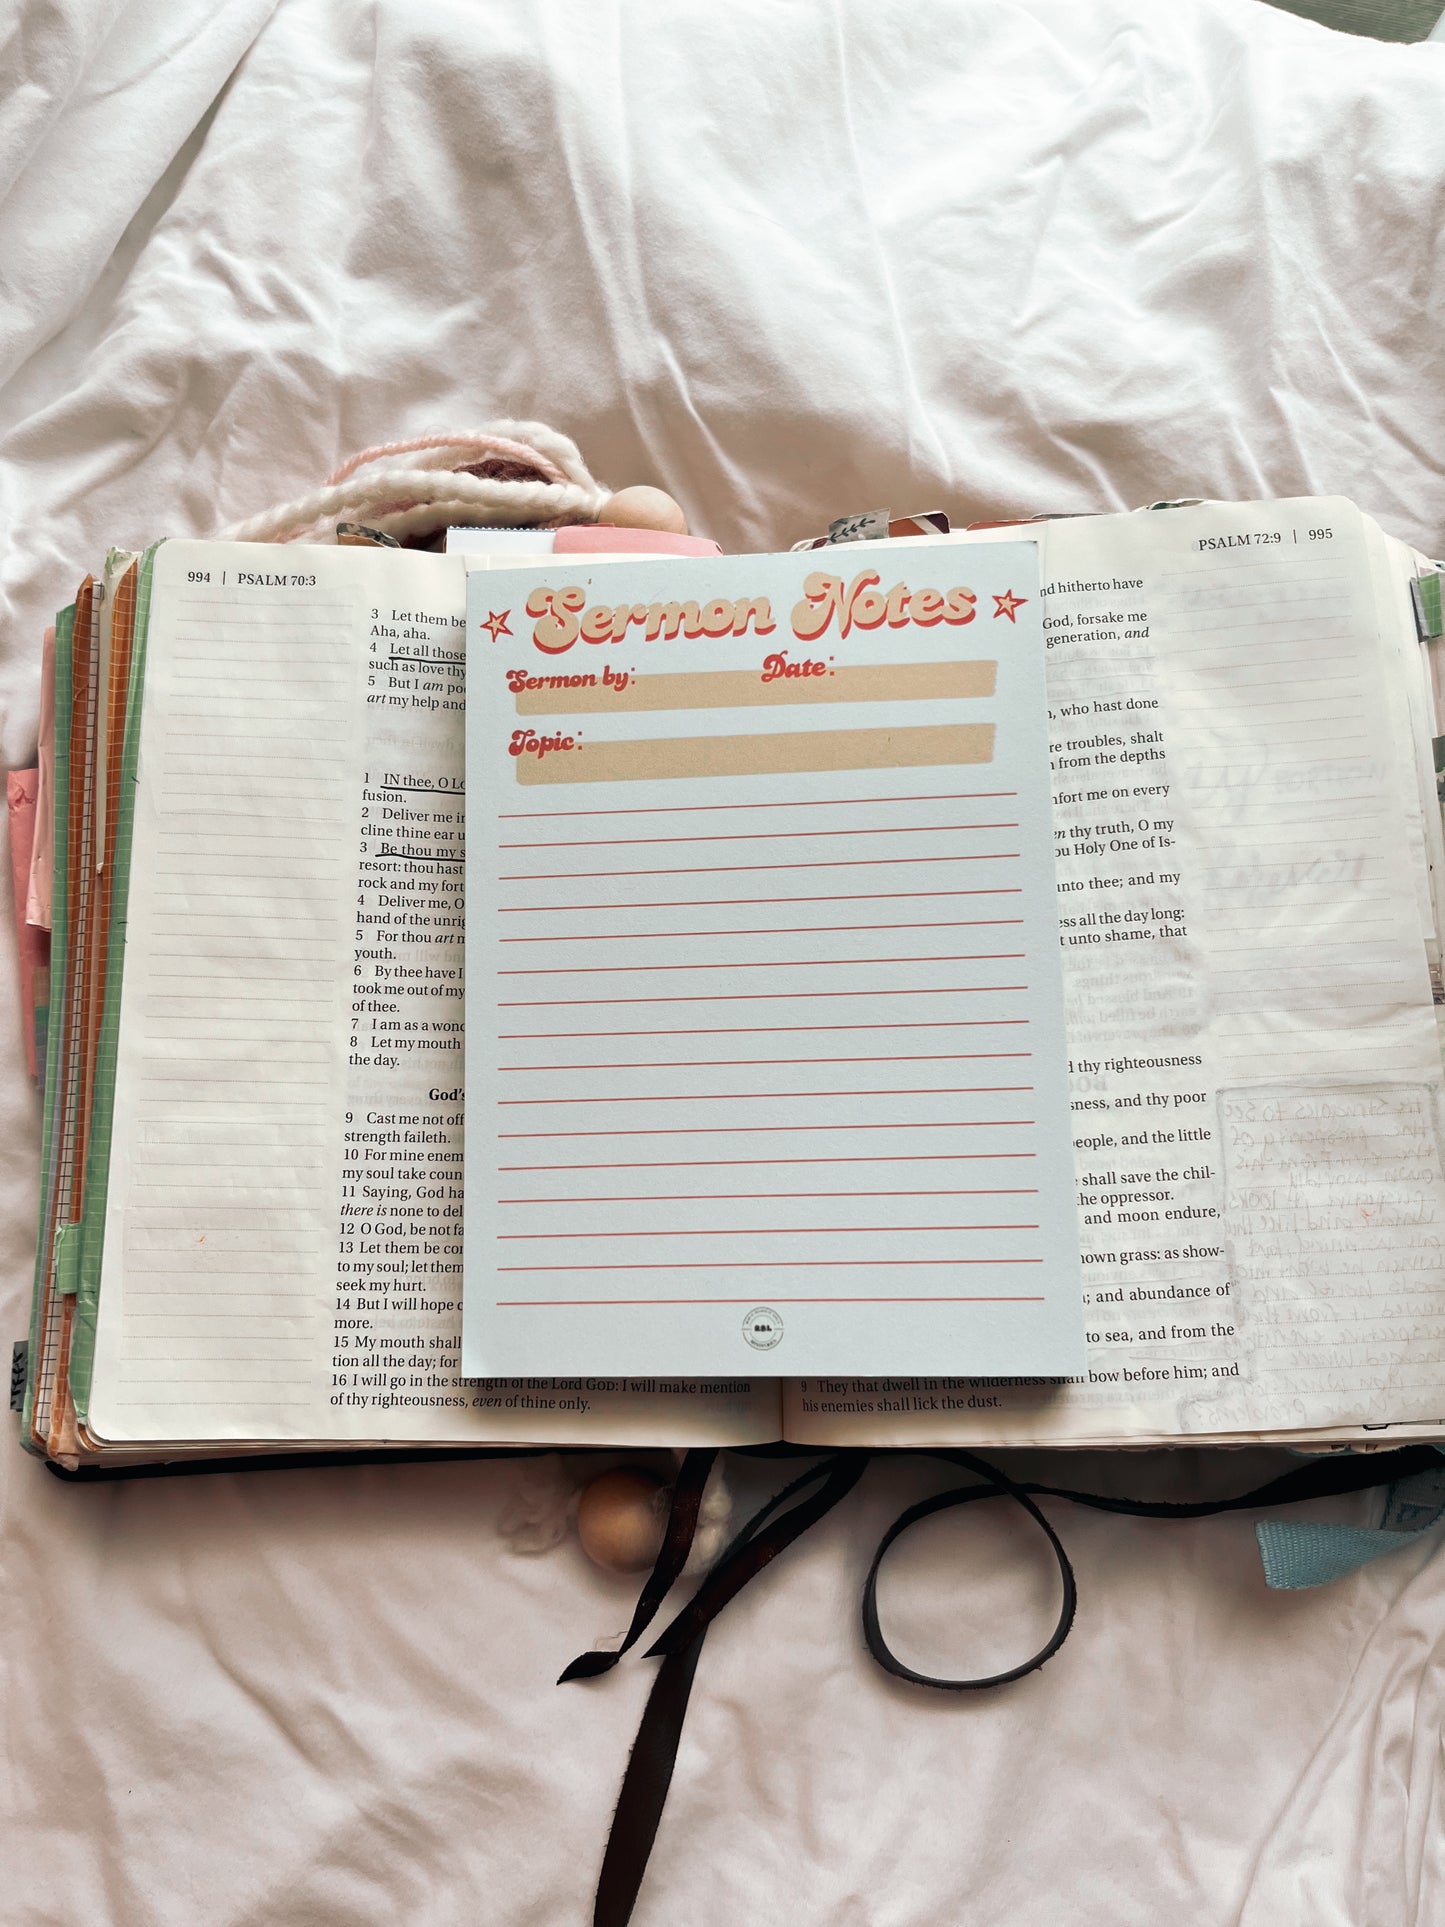 994 | PSALM 70:3
3 Let them be
Aha, aha.
4 Let all those
such as love thy
5 But I am
art my help and
1 IN thee, O
fusion.
2 Deliver me
cline thine ear
3 Be thou my
resort: thou hast
rock and my fort
4 Deliver me, O
hand of the
5 For thou art
youth.
6 By thee have I
took me out of my
of thee.
7 I am as a
8 Let my mouth
the day.
God's
9 Cast me not off
strength faileth.
10 For mine
my soul take
11 Saying, God
there is none to
12 O God, be not
13 Let them be
to my soul; let them
seek my hurt.
14 But I will hope
more.
15 My mouth shall
tion all the day; for
16 I will go in the strength of the Lord GOD: I will make mention
of thy righteousness, even of thine only.
Sermon Notes
Sermon by: Date:
Topic:
RBL
PSALM 72:9 | 995
hitherto have
God, forsake me
generation, and
, who hast done
troubles, shalt
from the depths
me on every
thy truth, O my
Holy One of Is-
unto thee; and my
all the day long:
unto shame, that
thy righteousness
and thy poor
people, and the little
shall save the chil-
the oppressor.
and moon endure,
grass: as show-
; and abundance of
to sea, and from the
9 They that dwell in the wilderness shall bow before him; and
his enemies shall lick the dust.